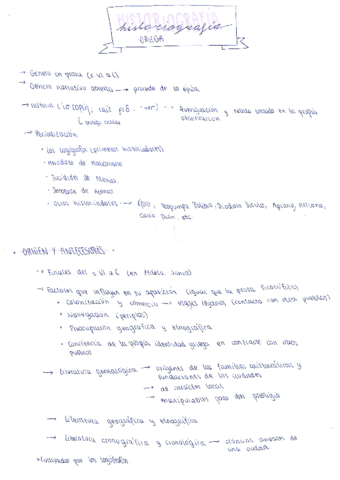 HISTORIOGRAFÍA
historiografía
GRIEGA
→ Género en prosa (s. VI a.C)
→ Género narrativo abierto → procede de la épica
→ Historia (ἱστορίη, raíz ϝιδ- "ver") → Averiguación y relato basado en la propia
observación
→ Periodización
• Los logógrafos (primeros historiadores)
• Heródoto de Halicarnaso
• Tucídides de Atenas
• Jenofonte de Atenas
• Otros historiadores → Éforo, Teopompo, Polibio, Diodoro Sículo, Apiano, Arriano,
Casio Dión, etc.
• ORIGEN Y ANTECESORES •
→ Finales del s. VI a.C (en Mileto, Jonia)
→ Factores que influyen en su aparición (igual que la prosa filosófica)
• Colonización y comercio → viajes lejanos (contacto con otros pueblos)
• Navegación (periplos)
• Preocupación geográfica y etnográfica
• Conciencia de la propia identidad griega en contraste con otros
pueblos
→ Literatura genealógica → orígenes de las familias aristocráticas y
fundaciones de las ciudades
→ de carácter local
→ manipulables para dar prestigio
→ Literatura geográfica y etnográfica
→ Literatura cronográfica y cronológica → crónicas anuales de
una ciudad
*Cultivadas por los logógrafos